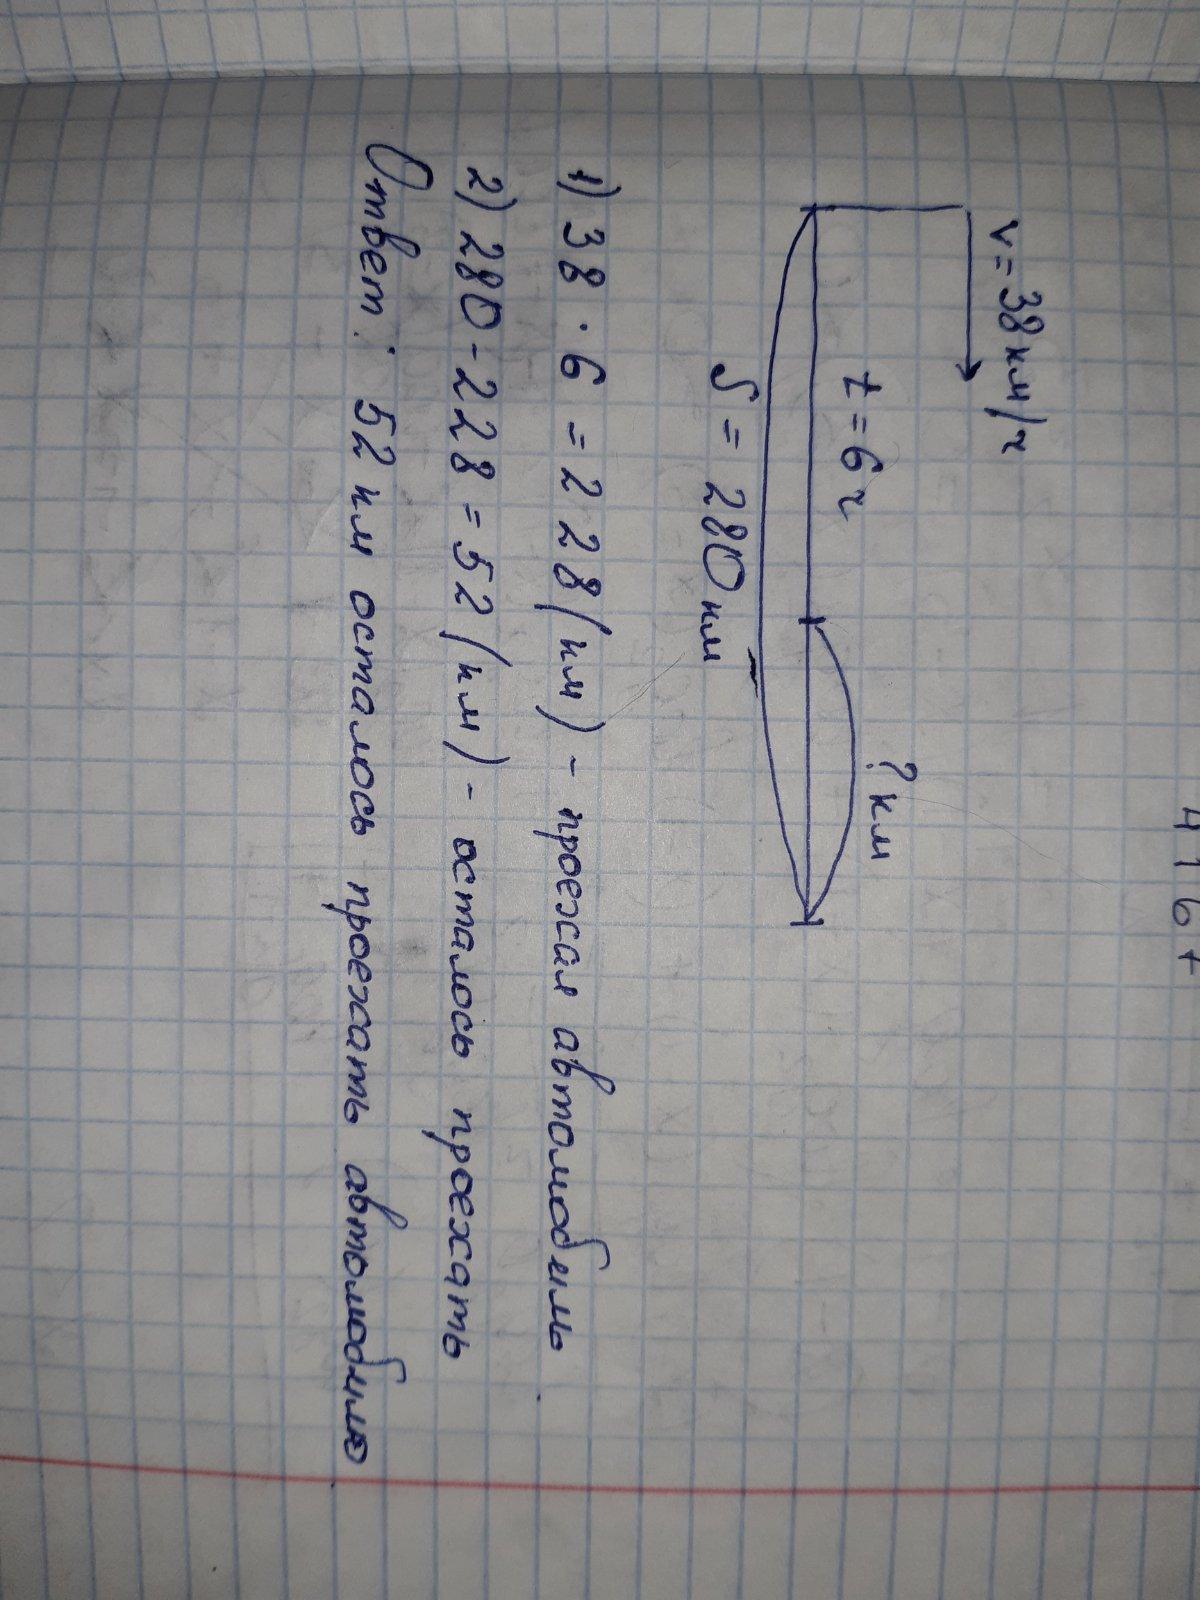 v = 38 км/ч
t = 6 ч
? км
S = 280 км
1) 38 · 6 = 228 (км) - проехал автомобиль
2) 280 - 228 = 52 (км) - осталось проехать
Ответ: 52 км осталось проехать автомобилю